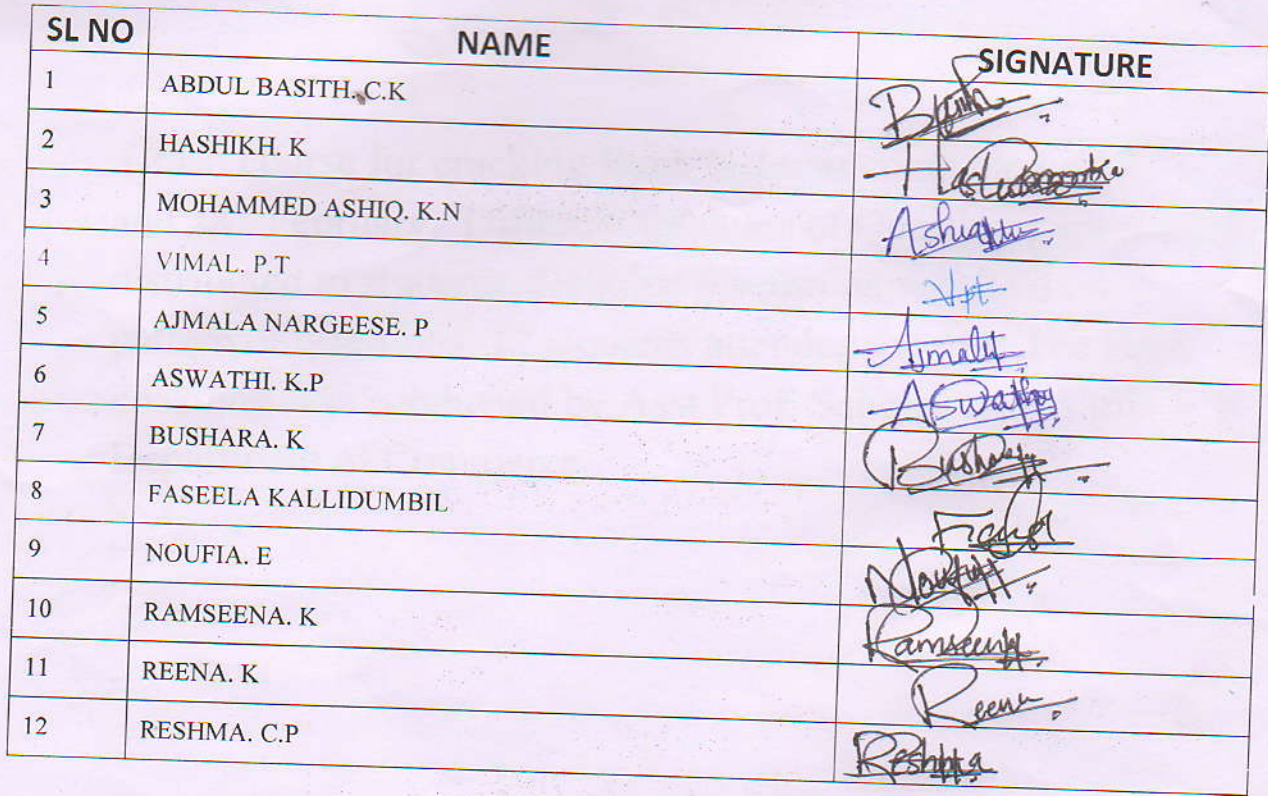 SL NO NAME SIGNATURE
1 ABDUL BASITH. C.K
2 HASHIKH. K
3 MOHAMMED ASHIQ. K.N Ashiq
4 VIMAL. P.T Vpt
5 AJMALA NARGEESE. P Ajmala
6 ASWATHI. K.P Aswathy
7 BUSHARA. K Bushara
8 FASEELA KALLIDUMBIL
9 NOUFIA. E
10 RAMSEENA. K Ramseena
11 REENA. K Reena
12 RESHMA. C.P Reshma